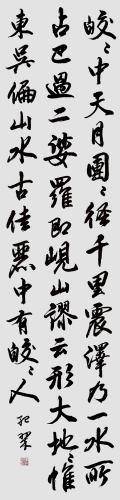 皎〻中天月團〻徑千里震澤乃一水所
占已過二娑羅即峴山謬云形大地〻惟
東吳偏山水古佳麗中有皎〻人